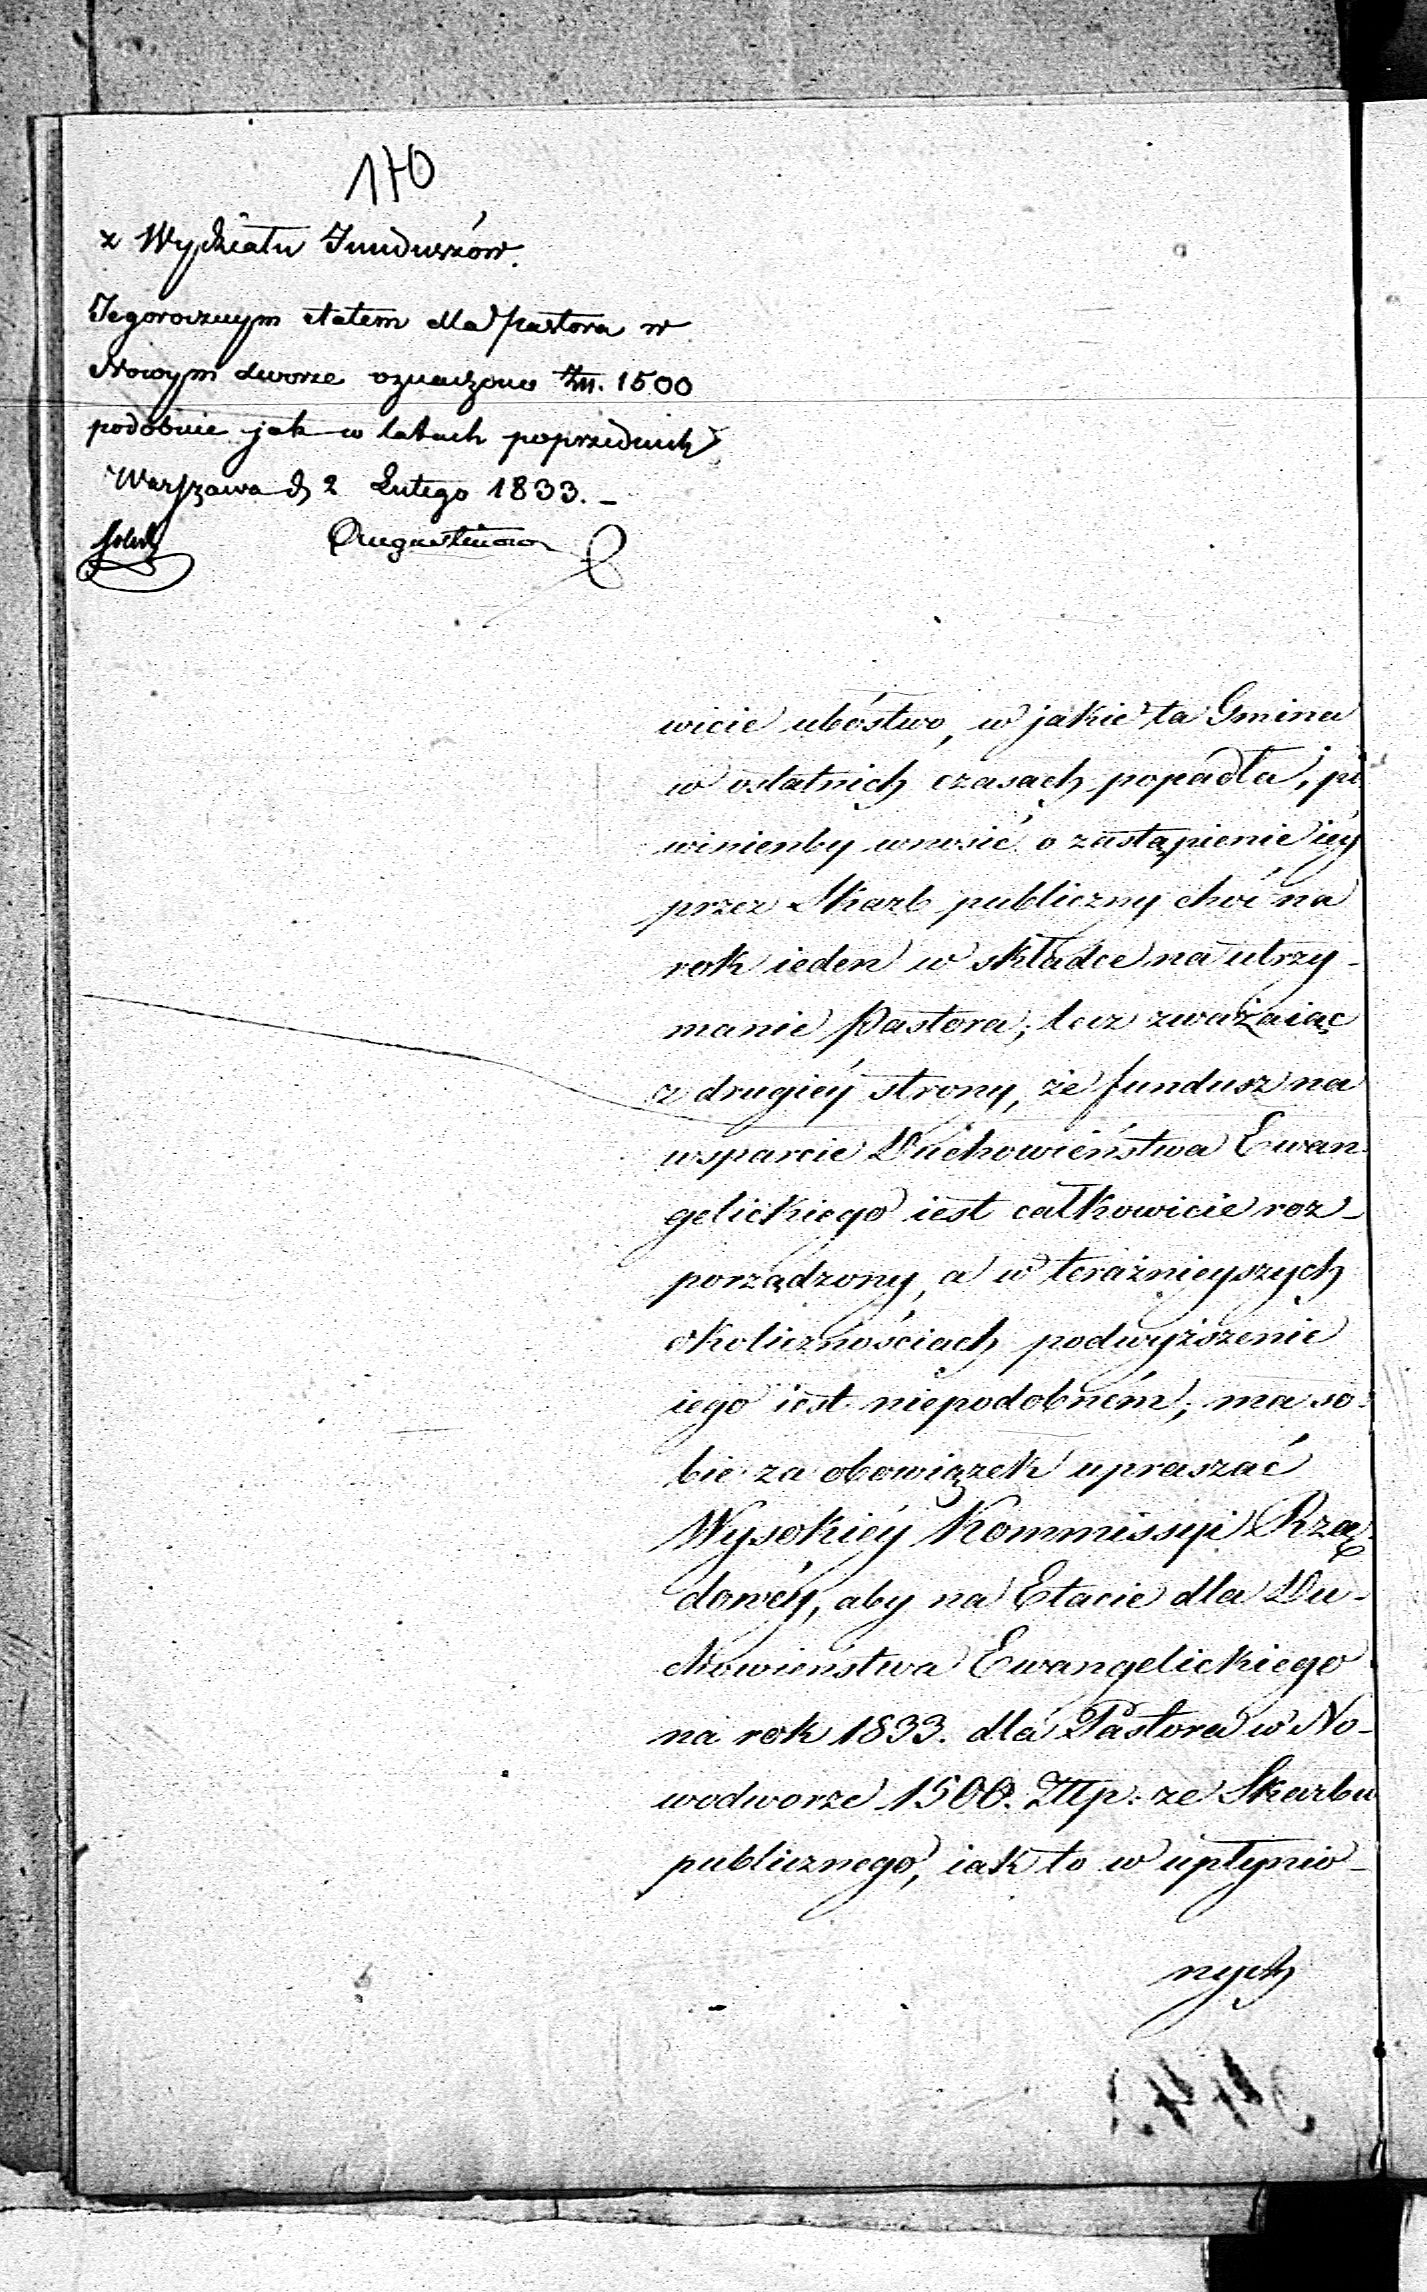 170
z Wydziału Funduszów.
Tegorocznym etatem dla Pastora w
Nowym dworze oznaczono Złł. 1500
podobnie jak w latach poprzednich
Warszawa d. 2 Lutego 1833. -
wicie ubóstwo, w jakie ta Gmina
w ostatnich czasach popadła, po
winienby wnosić o zastąpienie iéy
przez Skarb publiczny choć na
rok ieden w składce na utrzy-
manie Pastora; lecz zważaiąc
z drugiéy strony, że fundusz na
wsparcie Duchowieństwa Ewan-
gelickiego iest całkowicie roz-
porządzony, a w teraźnieyszych
okolicznościach podwyższenie
iego iest niepodobném; ma so-
bie za obowiązek upraszać
Wysokiéy Kommissyi Rzą-
dowéy, aby na Etacie dla Du-
chowieństwa Ewangelickiego
na rok 1833. dla Pastora w No-
wodworze 1500. Złłp: ze Skarbu
publicznego, iak to w upłynio-
nych